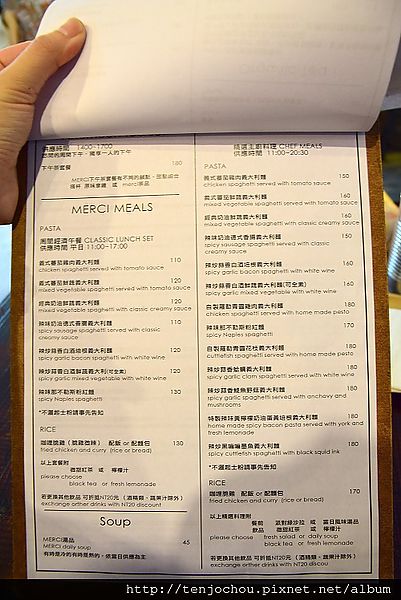 供應時間 1400~1700
悠閒的周間下午，獨享一人的下午
下午茶套餐 180
MERCI下午茶套餐有不同的鹹點、甜點組合
搭杯 原味拿鐵 或 merci茶品
MERCI MEALS
PASTA
周間經濟午餐 CLASSIC LUNCH SET
供應時間 平日11:00~17:00
義式蕃茄雞肉義大利麵 110
chicken spaghetti served with tomato sauce
義式蕃茄鮮蔬義大利麵 120
mixed vegetable spaghetti served with tomato sauce
經典奶油鮮蔬義大利麵 120
mixed vegetable spaghetti served with classic creamy sauce
辣味奶油德式香腸義大利麵 110
spicy sausage spaghetti served with classic
creamy sauce
辣炒蒜香白酒培根義大利麵 120
spicy garlic bacon spaghetti with white wine
辣炒蒜香白酒鮮蔬義大利麵(可全素) 120
spicy garlic mixed vegetable with white wine
辣味那不勒斯粉紅麵 130
spicy Naples spaghetti
*不灑起士粉請事先告知
RICE
咖哩脆雞（脆雞微辣） 配飯 or 配麵包 130
fried chicken and curry (rice or bread)
以上套餐附
微甜紅茶 或 檸檬汁
please choose
black tea or fresh lemonade
若更換其他飲品 可折抵NT20元（酒精類、蔬果汁除外）
exchange orther drinks with NT20 discount
Soup
MERCI湯品 45
MERCI daily soup
有時是冷的有時是熱的，依當日供應為主
精選主廚料理 CHEF MEALS
供應時間 11:00~20:30
PASTA
義式蕃茄雞肉義大利麵 150
chicken spaghetti served with tomato sauce
義式蕃茄鮮蔬義大利麵 160
mixed vegetable spaghetti served with tomato sauce
經典奶油鮮蔬義大利麵 160
mixed vegetable spaghetti served with classic creamy sauce
辣味奶油德式香腸義大利麵 150
spicy sausage spaghetti served with classic
creamy sauce
辣炒蒜香白酒培根義大利麵 160
spicy garlic bacon spaghetti with white wine
辣炒蒜香白酒鮮蔬義大利麵(可全素) 160
spicy garlic mixed vegetable with white wine
自製羅勒青醬雞肉義大利麵 180
chicken spaghetti served with home made pesto
辣味那不勒斯粉紅麵 170
spicy Naples spaghetti
自製羅勒青醬花枝義大利麵 180
cuttlefish spaghetti served with home made pesto
辣炒蒜香蛤蠣義大利麵 180
spicy garlic clam spaghetti served with white wine
辣炒蒜香鯷魚野菇義大利麵 180
spicy garlic spaghetti served with anchavy and
mushrooms
特製辣味黃檸檬奶油蛋黃培根義大利麵 180
home made spicy bacon pasta served with york and
fresh lemonade
辣炒黑嚕嚕墨魚義大利麵 180
spicy cuttlefish spaghetti with black squid ink
*不灑起士粉請事先告知
RICE
咖哩脆雞 配飯 or 配麵包 170
fried chicken and curry (rice or bread)
以上精選料理附
餐前 派對綠沙拉 或 當日風味湯品
飲品 微甜紅茶 或 檸檬汁
please choose fresh salad or daily soup
black tea or fresh lemonade
若更換其他飲品 可折抵NT20元（酒精類、蔬果汁除外）
exchange orther drinks with NT20 discou
http://tenjochou.pixnet.net/album